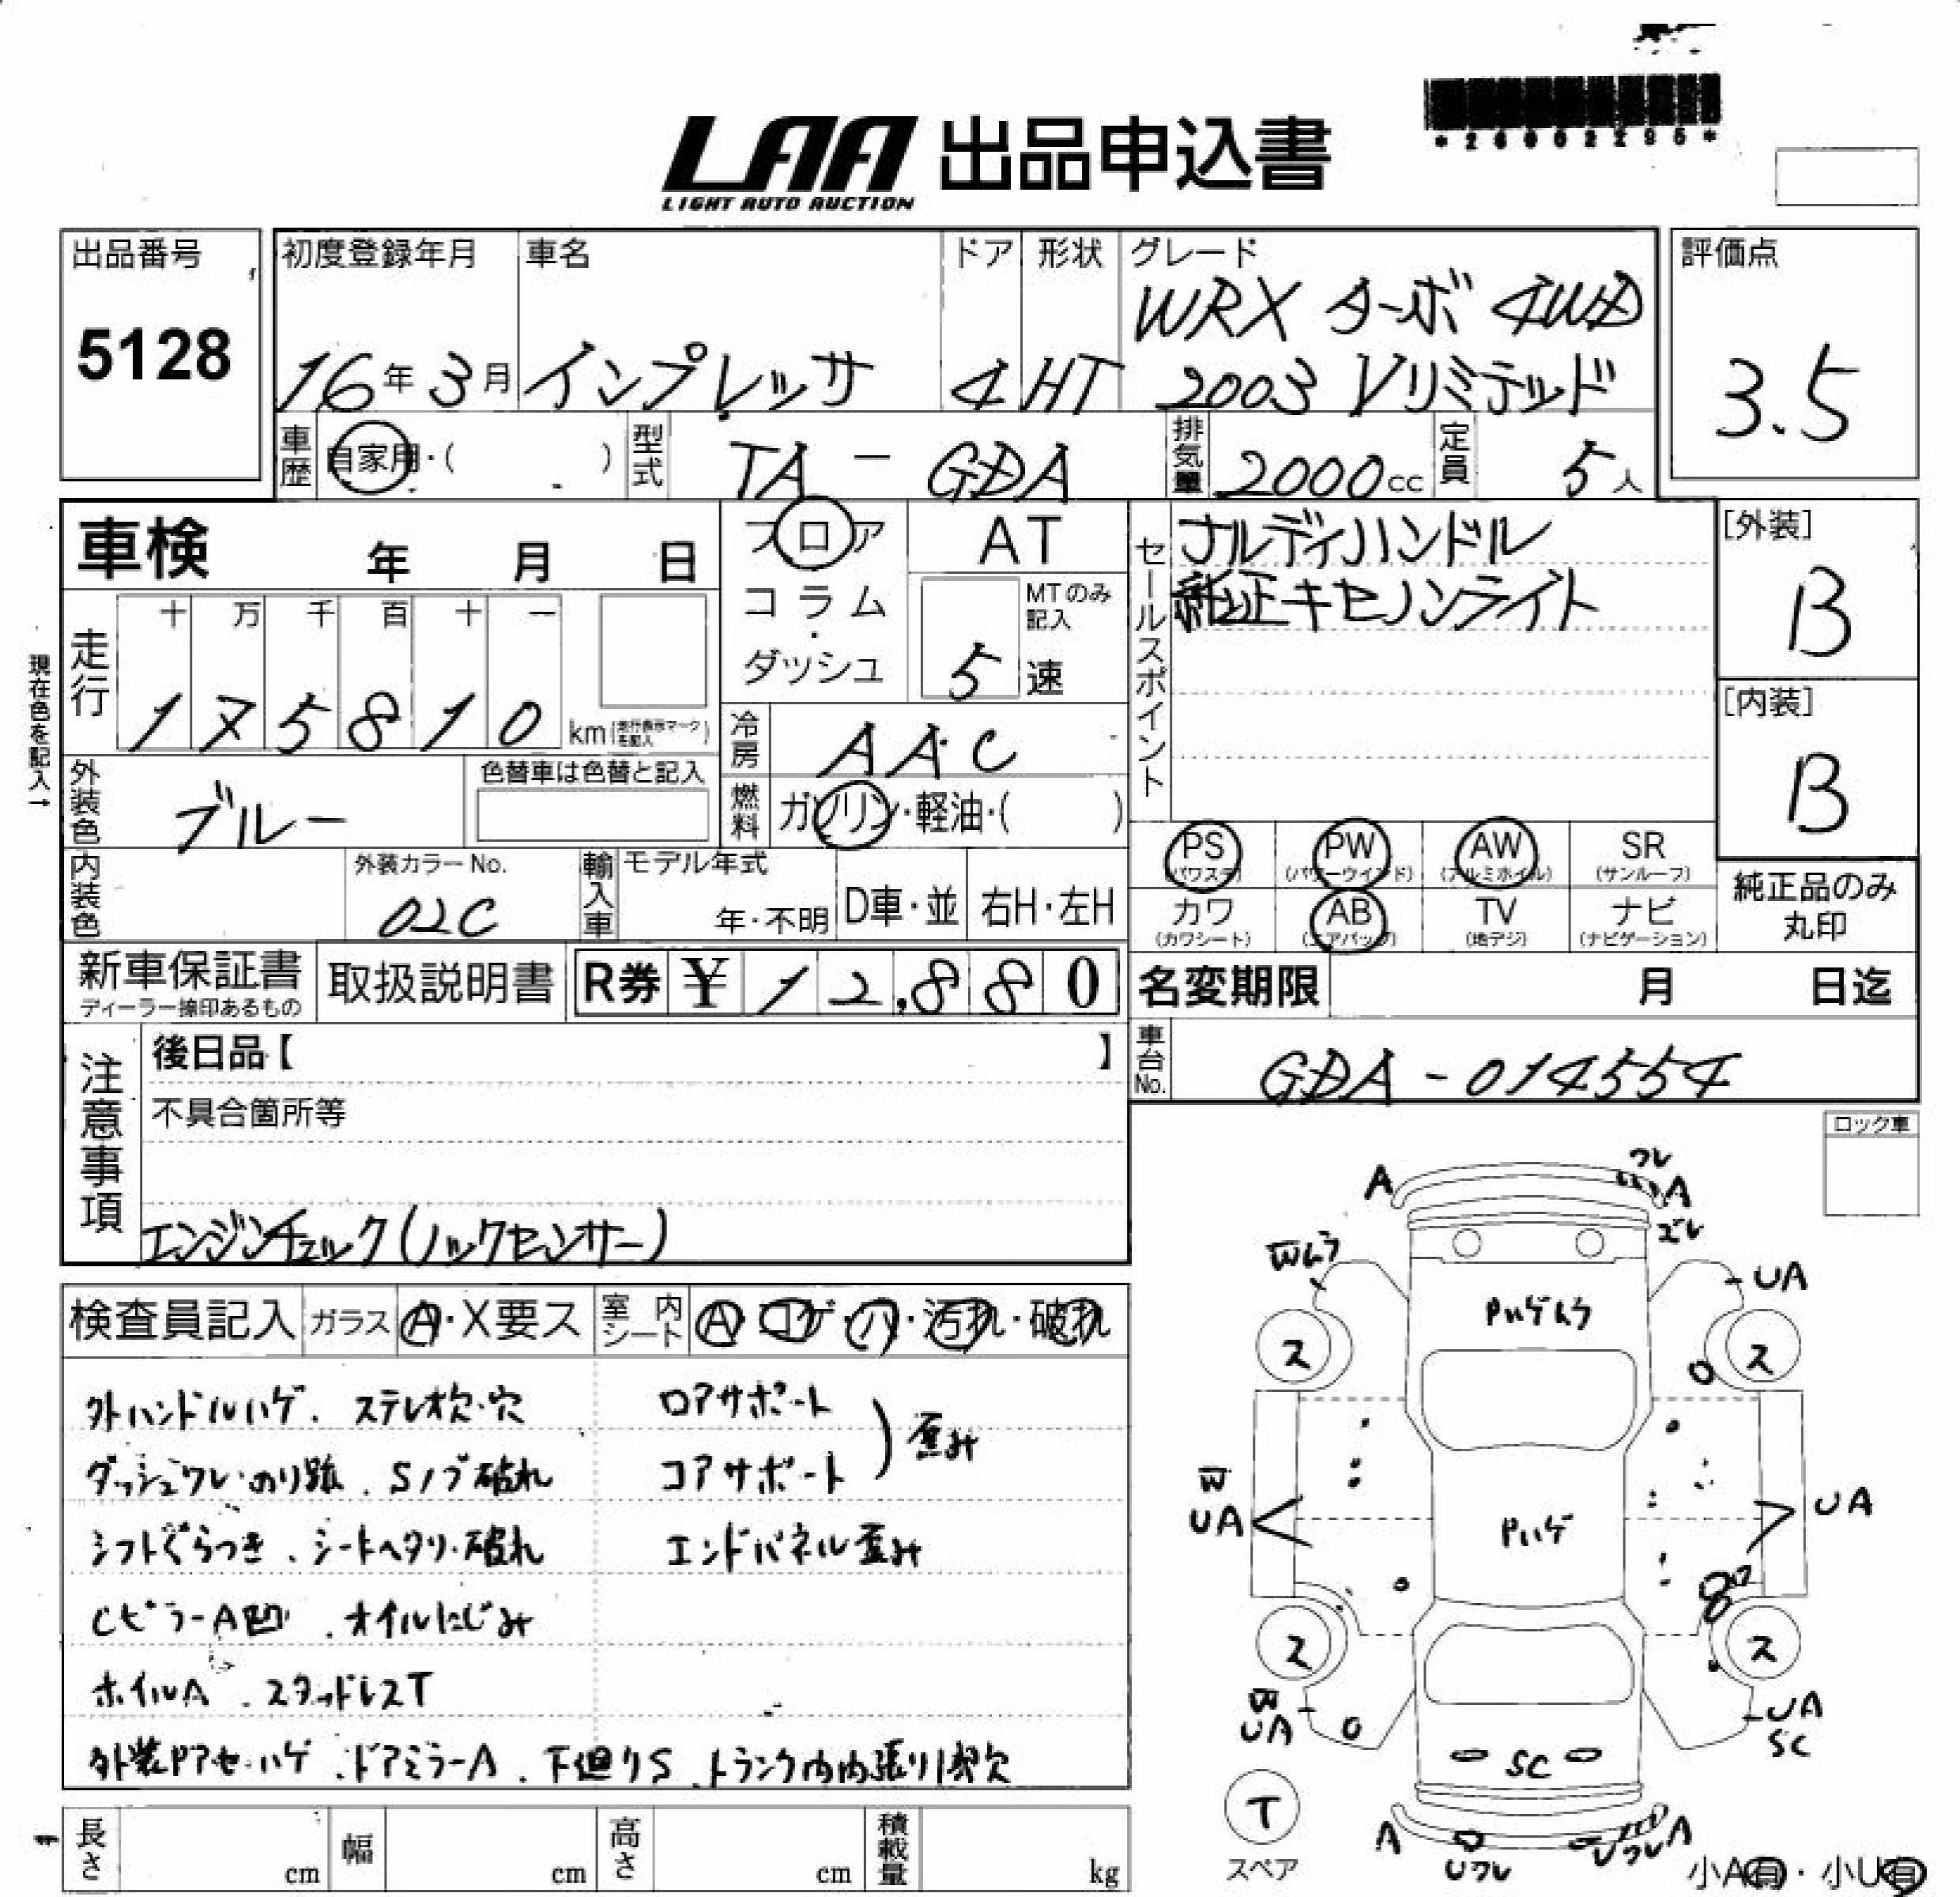 LAA 出品申込書
LIGHT AUTO AUCTION
出品番号
5128
初度登録年月
16年 3月
車名
インプレッサ
ドア
4
形状
HT
グレード
WRX ターボ 4WD
2003 Vリミテッド
評価点
3.5
車歴
自家用・( )
型式
TA - GDA
排気量
2000cc
定員
5人
車検 年 月 日
走行
十 万 千 百 十 一
1 7 5 8 1 0
km(走行表示マークを記入)
現在色を記入→
外装色
ブルー
色替車は色替と記入
内装色
外装カラーNo.
02C
フロア
コラム
・
ダッシュ
AT
MTのみ記入
5 速
冷房
AAC
燃料
ガソリン・軽油・( )
輸入車
モデル年式
年・不明
D車・並
右H・左H
セールスポイント
ナルディハンドル
純正キセノンライト
[外装]
B
[内装]
B
PS PW AW SR
(パワステ) (パワーウインド) (アルミホイル) (サンルーフ)
カワ AB TV ナビ
(カワシート) (エアバッグ) (地デジ) (ナビゲーション)
純正品のみ
丸印
新車保証書
取扱説明書
R券 ¥ 12,880
名変期限 月 日迄
車台No.
GDA-014554
注意事項
後日品【 】
不具合箇所等
エンジンチェック(ノックセンサー)
ロック車
検査員記入
ガラス
A・X要ス
室内シート
A・コゲ・ハ・汚れ・破れ
外ハンドルハゲ、ステレオ欠・穴
ダッシュワレ・のり跡、Sノブ破れ
シフトぐらつき、シートヘタリ・破れ
CピラーA凹、オイルにじみ
ホイルA、スタッドレスT
外装Pアセ・ハゲ、ドアミラーA、下廻りS、トランク内内張り1部欠
ロアサポート
コアサポート
) 歪み
エンドパネル歪み
A
ワレ
A
ズレ
Wムラ
UA
Pハゲムラ
ス
ス
W
UA
UA
Pハゲ
ス
ス
W
UA
UA
SC
SC
T
スペア
A
Uワレ
Uワレ
A
小A有・小U有
長さ cm
幅 cm
高さ cm
積載量 kg